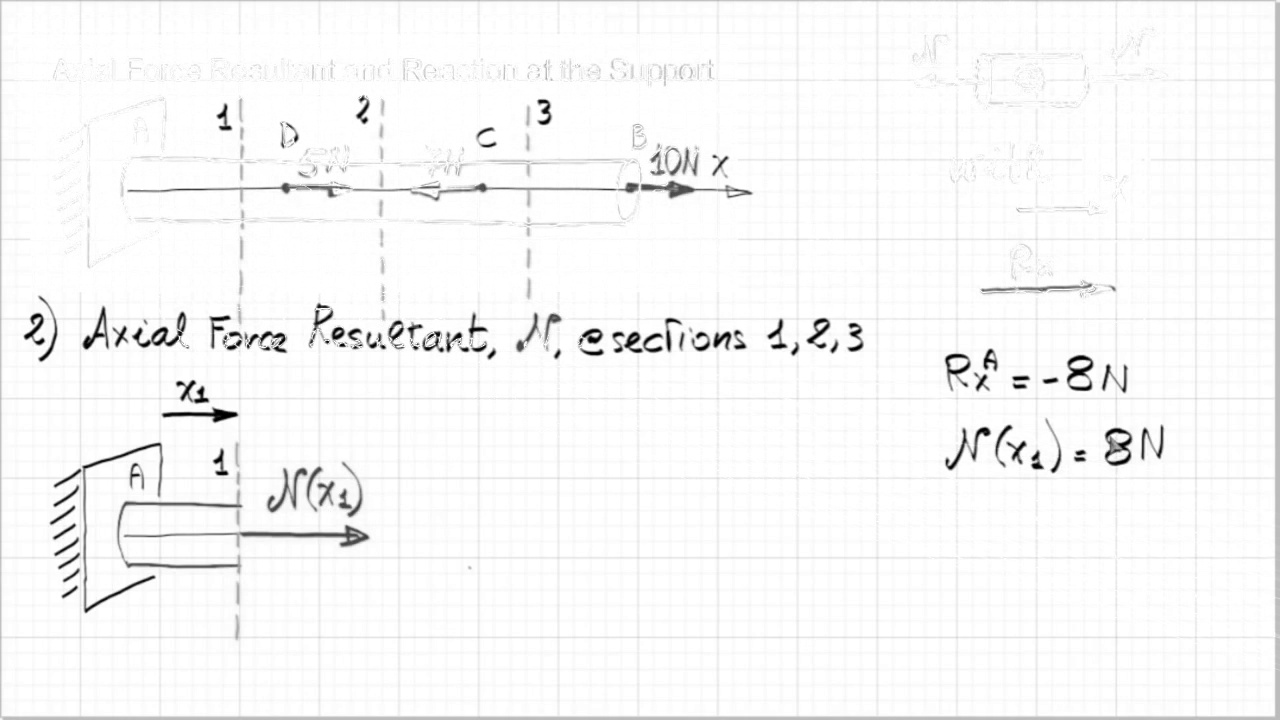 Axial Force Resultant and Reaction at the Support
N N
1 2 3
A D C B
5N 7N 10N x
with
x
Rx
2) Axial Force Resultant, N, @ sections 1, 2, 3
RxA = -8N
x1
N(x1) = 8N
A 1
N(x1)